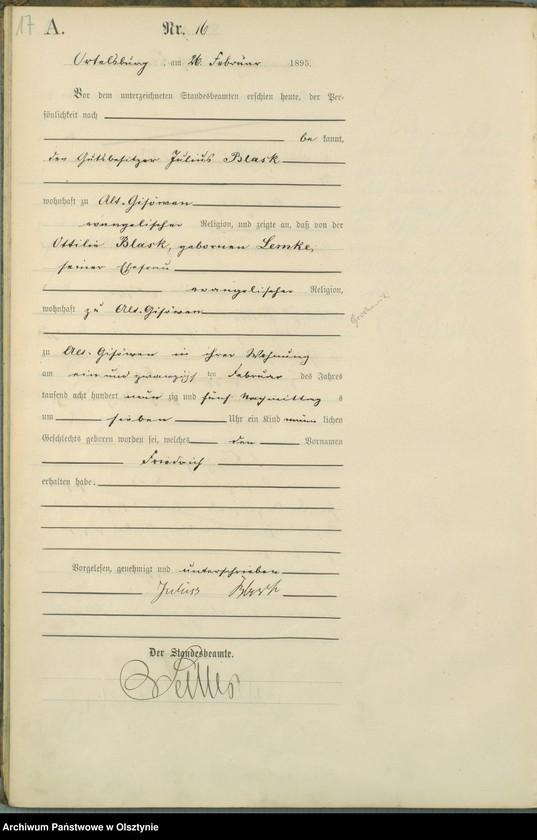 17 A. Nr. 16
Ortelsburg, am 26. Februar 1895.
Vor dem unterzeichneten Standesbeamten erschien heute, der Per-
sönlichkeit nach
be kannt,
der Gutsbesitzer Julius Blask
wohnhaft zu Alt-Gisöwen
evangelischer Religion, und zeigte an, daß von der
Ottilie Blask, geborenen Lemke,
seiner Ehefrau
evangelischer Religion,
wohnhaft zu Alt-Gisöwen
zu Alt-Gisöwen in ihrer Wohnung
am ein und zwanzigsten Februar des Jahres
tausend acht hundert neun zig und fünf Nachmittag s
um sieben Uhr ein Kind männ lichen
Geschlechts geboren worden sei, welches den Vornamen
Friedrich
erhalten habe.
Vorgelesen, genehmigt und unterschrieben
Julius Blask
Der Standesbeamte.
Archiwum Państwowe w Olsztynie